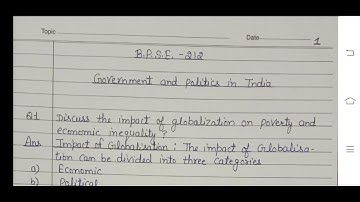 Topic
Date
1
B.P.S.E. - 212
Government and politics in India
Q1 Discuss the impact of globalization on poverty and
economic inequality?
Ans Impact of Globalisation : The impact of Globalisa-
tion can be divided into three categories
a) Economic
b) Political